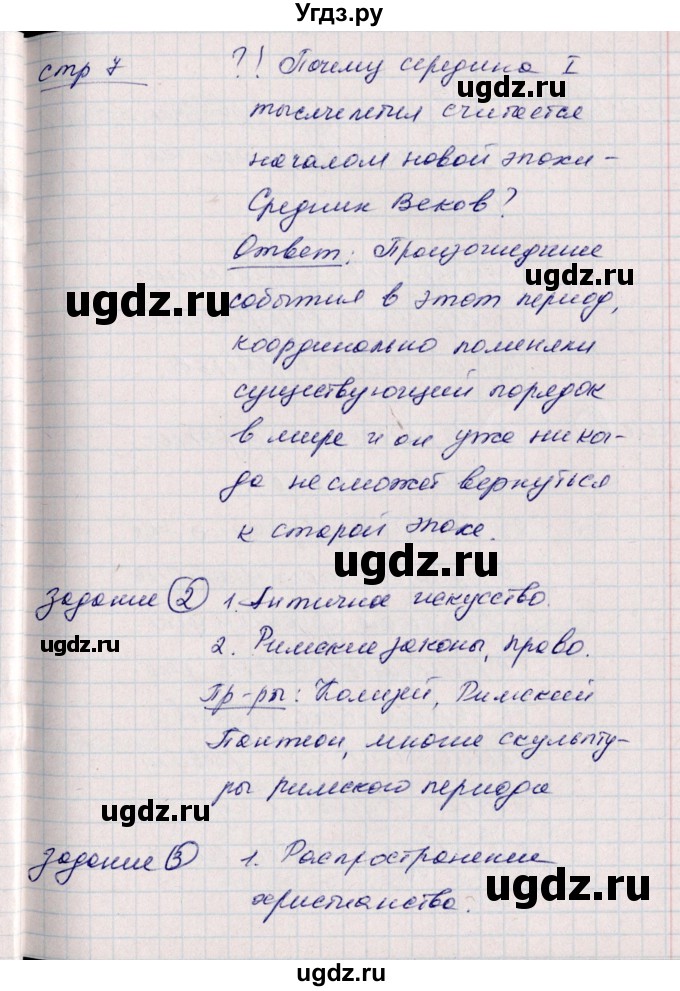 Угдз.ру
стр 7
?! Почему середина I
тысячелетия считается
началом новой эпохи –
Средних Веков?
Ответ: Произошедшие
события в этот период,
координально поменяли
существующий порядок
в мире и он уже никог-
да не сможет вернуться
к старой эпохе.
Задание 2 1. Античное искусство.
2. Римские законы, право.
Пр-ры: Колизей, Римский
Пантеон, многие скульпту-
ры римского периода
Задание 3 1. Распространение
христианства.
ugdz.ru
ugdz.ru
ugdz.ru
ugdz.ru
ugdz.ru
ugdz.ru
ugdz.ru
ugdz.ru
ugdz.ru
ugdz.ru